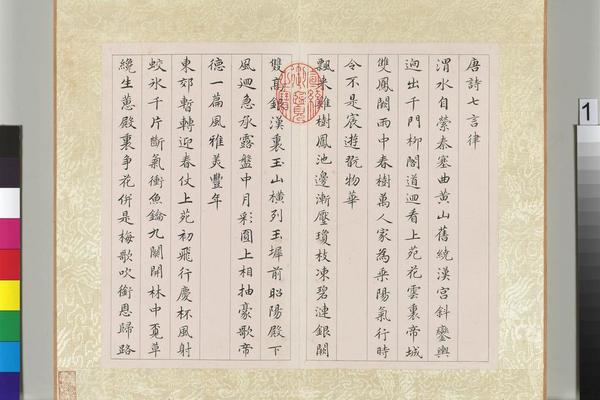 唐詩七言律
渭水自縈秦塞曲黄山舊繞漢宮斜鑾輿
迥出千門柳閣道迴看上苑花雲裏帝城
雙鳳闕雨中春樹萬人家為乘陽氣行時
令不是宸遊翫物華
飄來雞樹鳳池邊漸壓瓊枝凍碧漣銀闕
雙高銀漢裏玉山橫列玉墀前昭陽殿下
風迴急承露盤中月彩圓上相抽豪歌帝
德一篇風雅美豐年
東郊暫轉迎春仗上苑初飛行慶杯風射
蛟冰千片斷氣衝魚鑰九關開林中覓草
纔生蕙殿裏爭花併是梅歌吹銜恩歸路
1